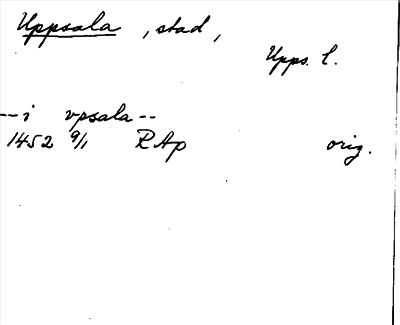 Uppsala, stad,
Upps. l.
--i vpsala--
1452 9/1 RAp orig.